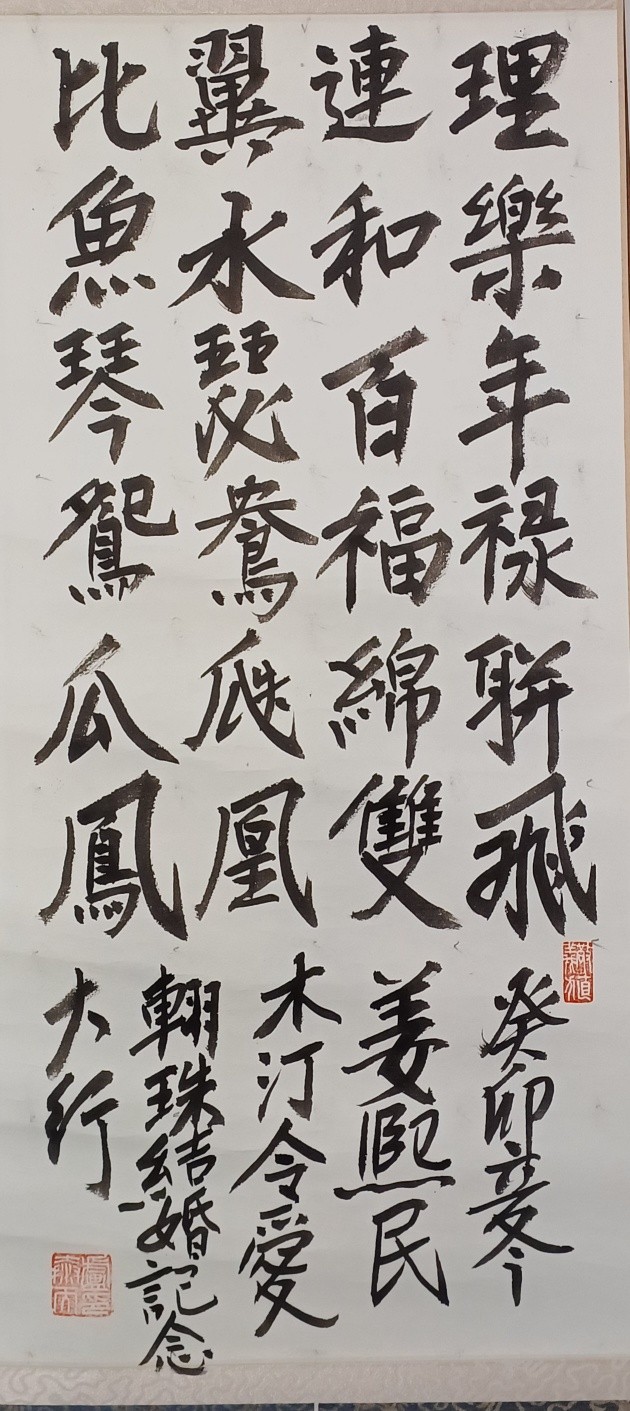 比翼連理
魚水和樂
琴瑟百年
鴛鴦福祿
瓜瓞綿聯
鳳凰雙飛
癸卯
姜熙民
木汀令愛
翰珠結婚記念
大行